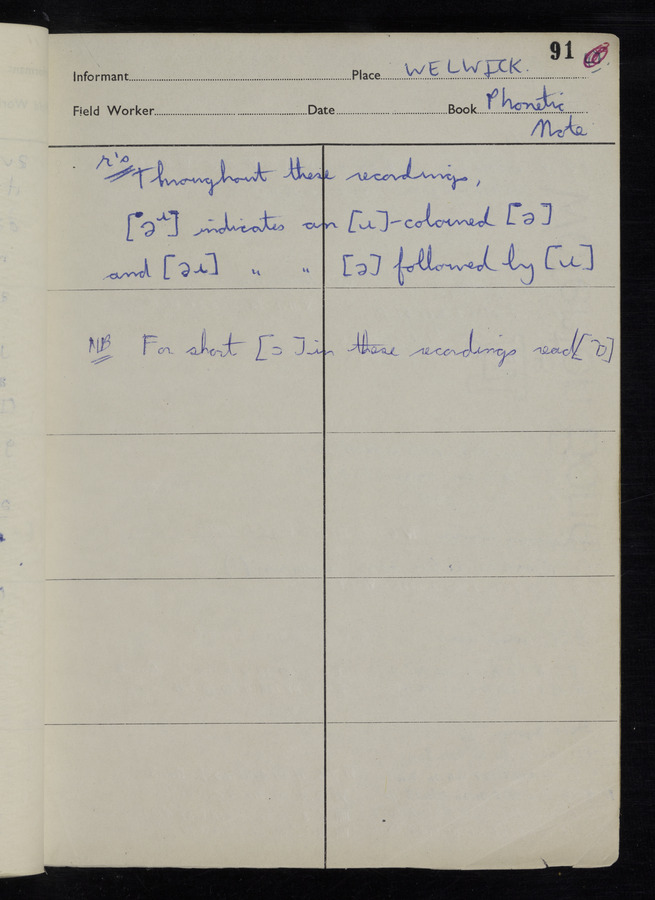 91
Informant Place WELWICK.
Field Worker Date Book Phonetic
Note
r's Throughout these recordings,
[əɹ] indicates an [ɹ]-coloured [ə]
and [əɹ] " " [ə] followed by [ɹ]
NB For short [ɔ] in these recordings read [ɒ]